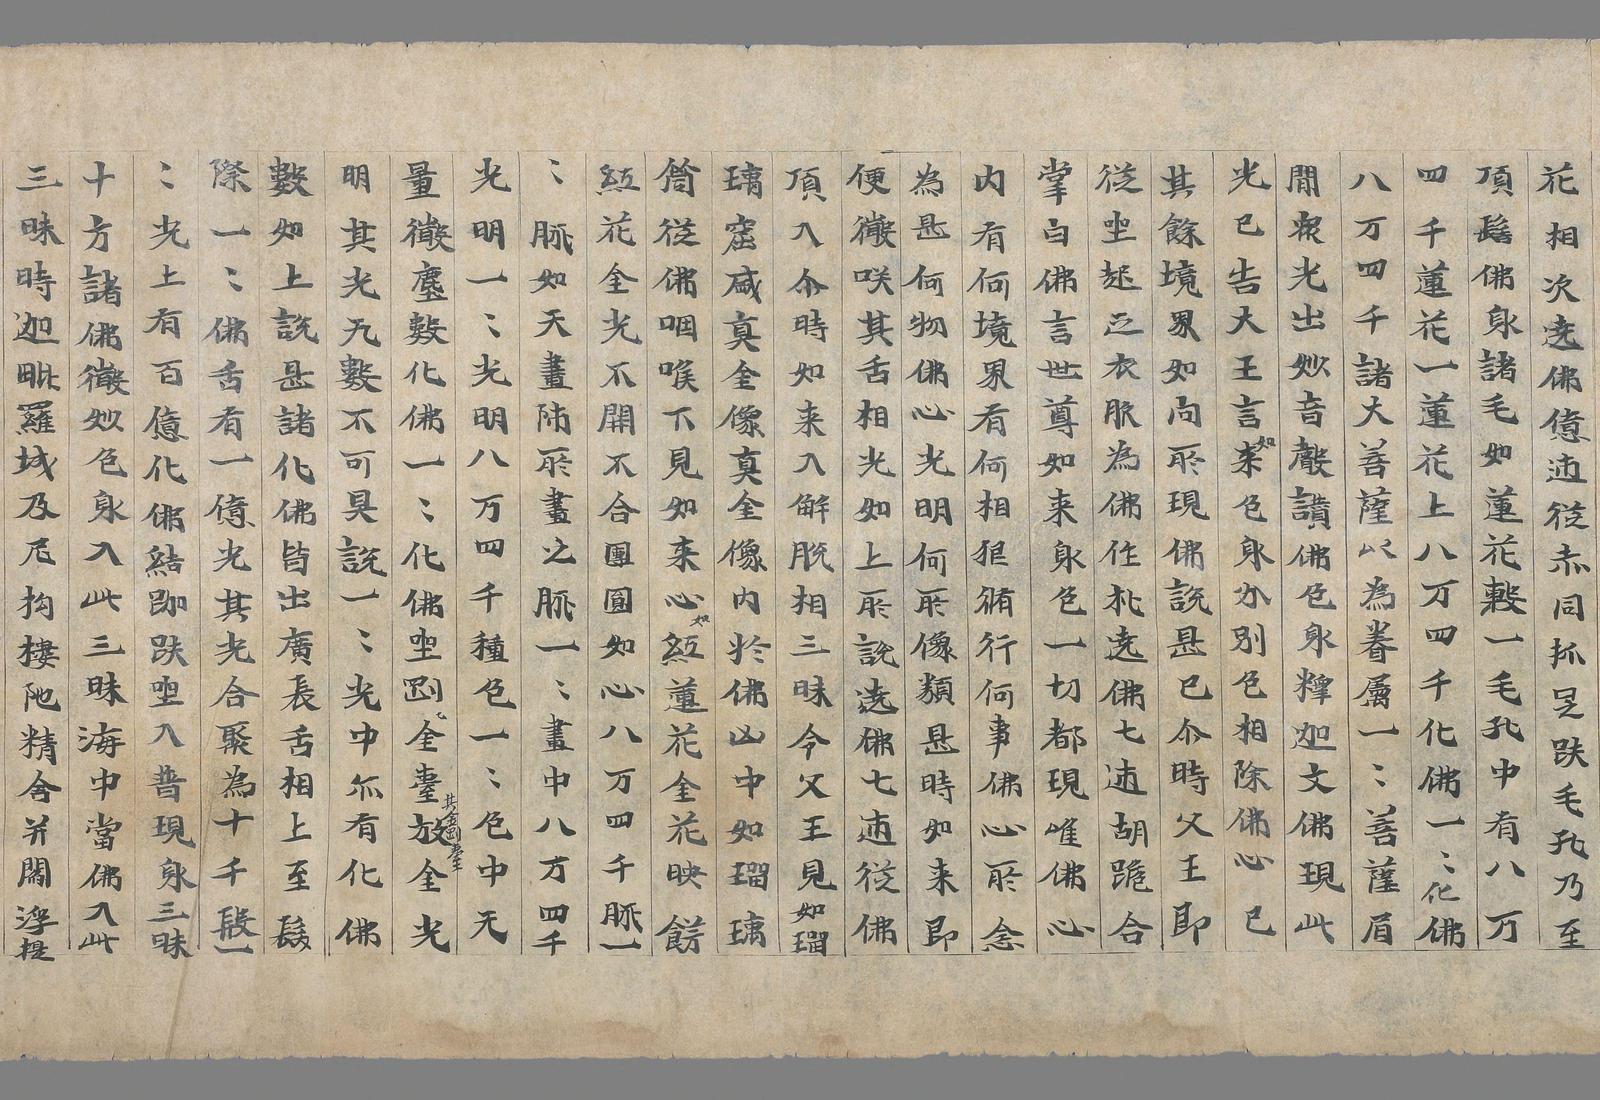 花相次遶佛億迊從赤同抓足趺毛孔乃至
頂髻佛身諸毛如蓮花鬘一毛孔中有八万
四千蓮花一蓮花上八万四千化佛一〻化佛
八万四千諸大菩薩以為眷属一〻菩薩眉
間衆光出妙音聲讃佛色身釋迦文佛現此
光已告大王言如来色身分別色相除佛心已
其餘境界如向所現佛說是已尒時父王即
從坐起正衣服為佛作礼遶佛七迊胡跪合
掌白佛言世尊如来身色一切都現唯佛心
内有何境界有何相狠脩行何事佛心所念
為是何物佛心光明何所像類是時如来即
便微咲其舌相光如上所說遶佛七迊從佛
頂入尒時如来入解脫相三昧令父王見如瑠
璃窟咸真金像真金像内於佛䒭中如瑠璃
筩從佛咽喉下見如来心如紅蓮花金花映餝
紅花金光不開不合團圓如心八万四千脉一
〻脉如天畫師所畫之脉一〻畫中八万四千
光明一〻光明八万四千種色一〻色中无
量微塵數化佛一〻化佛坐金剛臺其金剛臺放金光
明其光无數不可具說一〻光中亦有化佛
數如上說是諸化佛皆出廣長舌相上至髮
際一〻佛舌有一億光其光合聚為十千段一
〻光上有百億化佛結跏趺坐入普現身三昧
十方諸佛微妙色身入此三昧海中當佛入此
三昧時迦毗羅城及尼拘樓陁精舍并閻浮提